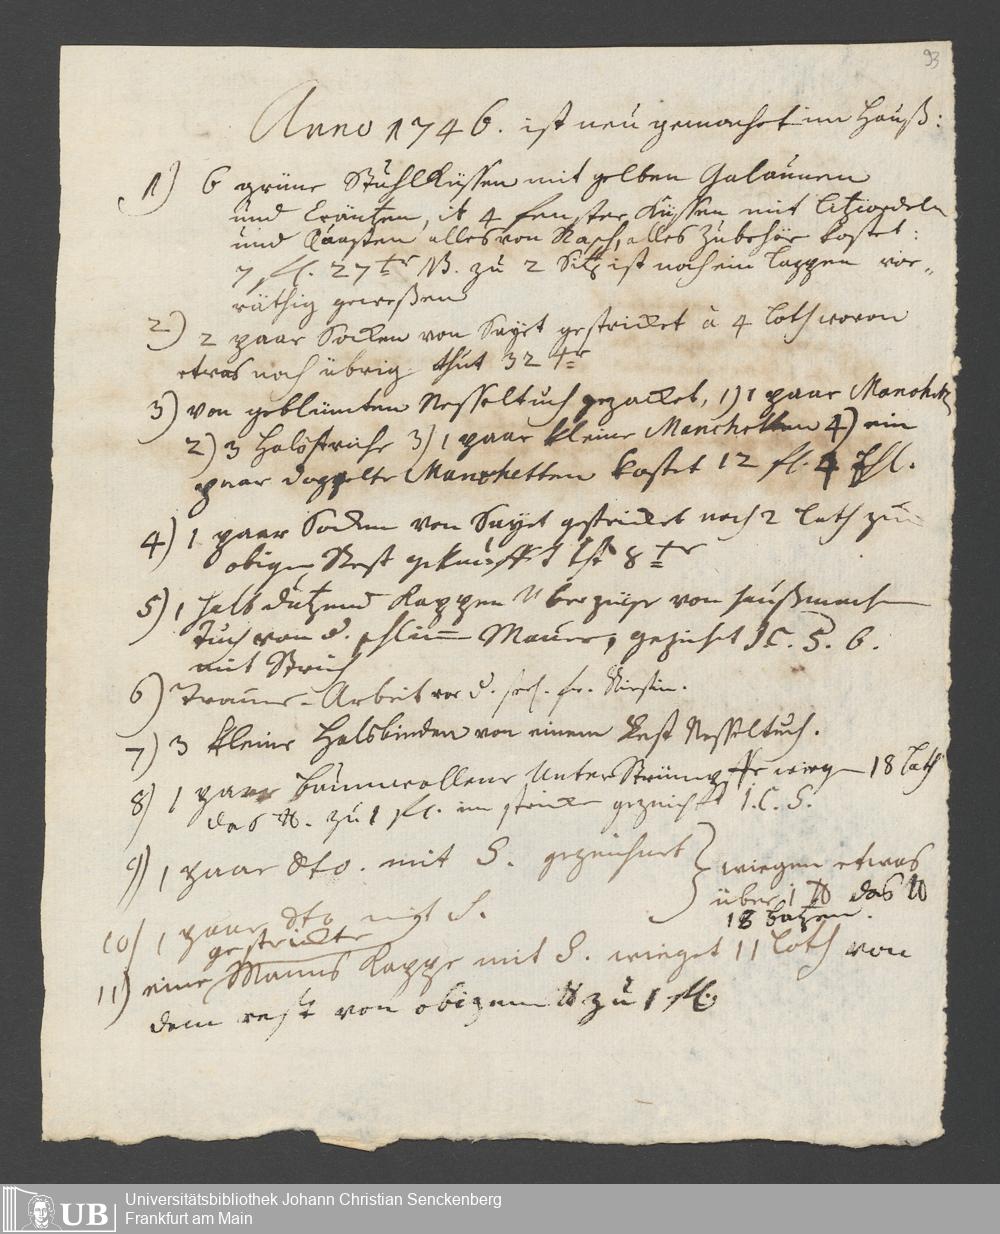 93
Anno 1746. ist neu gemachet im Hauß:
1) 6 grüne Stühlküssen mit gelben Galaunen
und Cräntzen, it 4 fenster Küssen mit
und Quasten alles von Rasch, alles Zubehör kostet:
7 fl. 27 xr NB. zu 2 Sitz ist noch ein Lappen vor„
räthig geweßen
2) 2 paar Socken von Sayet gestricket à 4 loth wovon
etwas noch übrig thut 32 xr
3) von geblümten Nesseltuch gezacket, 1) 1 paar
2) 3 Halsstriche 3) 1 paar kleine Manchetten 4) ein
paar doppelte Manchetten kostet 12 fl. 4
4) 1 paar Socken von Sayet gestricket noch 2 loth zum
obigen Rest gekaufft ist 8 xr
5) 1 halb dutzend Kappen Überzüge von haußmach
Tuch von d. Mauer, gezeichnet I C. S. 6.
mit Strich
6) Trauer-Arbeit vor d. seel. fr.
7) 3 kleine Halsbinden von einem Rest Nesseltuch.
8) 1 paar baumwollene Unter Strümpffe wiegen 18 loth
das ℔. zu 1 fl. im stricken gezeichnet I. C. S.
9) 1 paar dto. mit S. gezeichnet } wiegen etwas
über 1 ℔ das ℔
18 batzen.
10) 1 paar dto mit S.
gestrickte
11) eine Manns Kappe mit S. wieget 11 loth von
dem rest von obigem ℔ zu 1 fl.
UB
Universitätsbibliothek Johann Christian Senckenberg
Frankfurt am Main